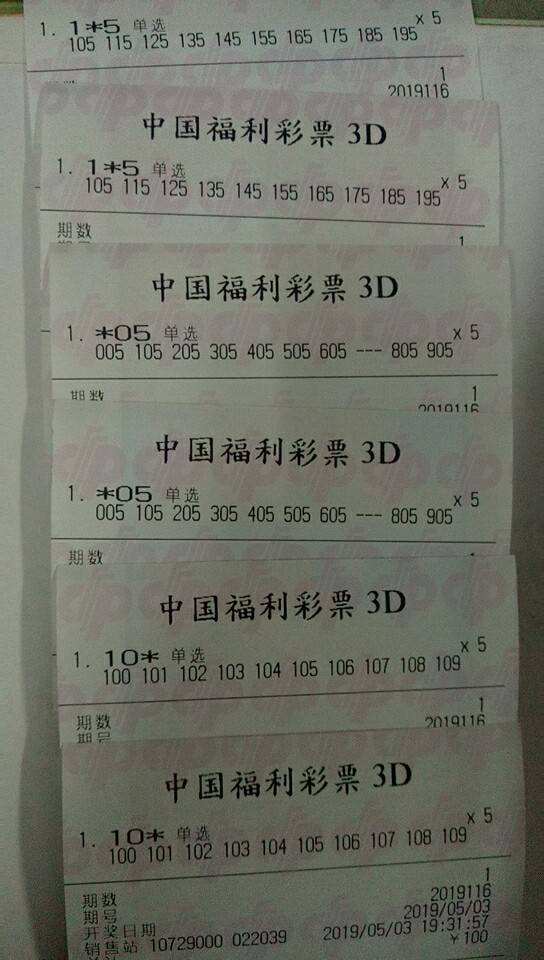 1. 1*5 单选 x 5
105 115 125 135 145 155 165 175 185 195
1
2019116
中国福利彩票 3D
1. 1*5 单选 x 5
105 115 125 135 145 155 165 175 185 195
期数 1
中国福利彩票 3D
1. *05 单选 x 5
005 105 205 305 405 505 605 --- 805 905
期数 1
2019116
中国福利彩票 3D
1. *05 单选 x 5
005 105 205 305 405 505 605 --- 805 905
期数 1
中国福利彩票 3D
1. 10* 单选 x 5
100 101 102 103 104 105 106 107 108 109
期数 1
期号 2019116
中国福利彩票 3D
1. 10* 单选 x 5
100 101 102 103 104 105 106 107 108 109
期数 1
期号 2019116
开奖日期 2019/05/03
销售站 10729000 022039 2019/05/03 19:31:57
¥100